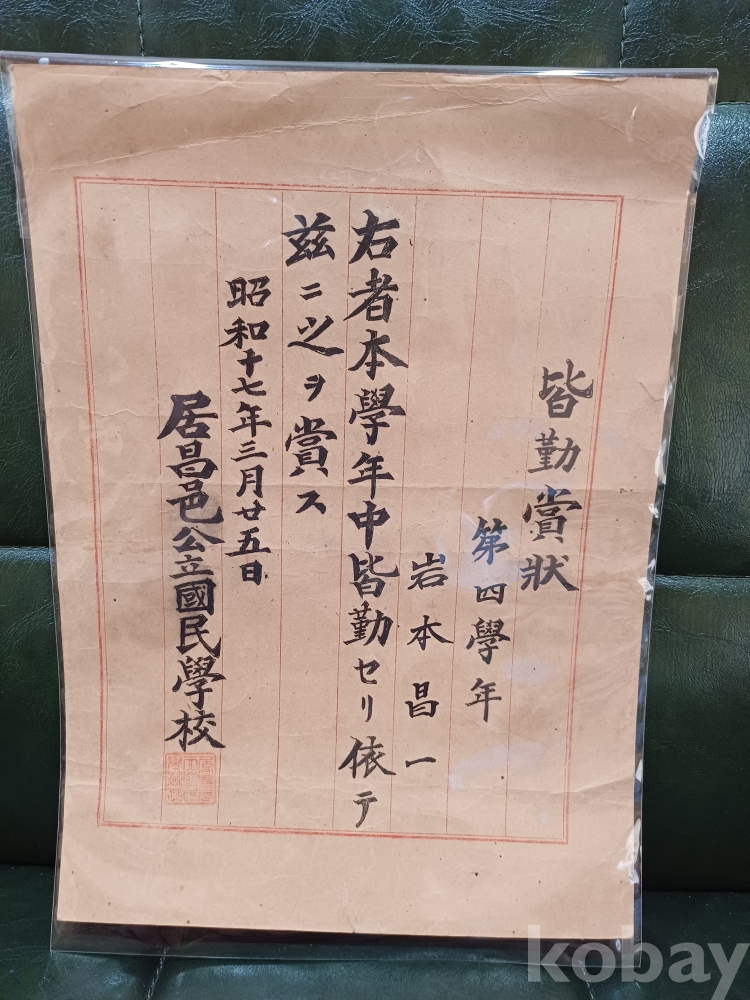 皆勤賞狀
第四學年
岩本昌一
右者本學年中皆勤セリ依テ
玆ニ之ヲ賞ス
昭和十七年三月廿五日
居昌邑公立國民學校
kobay